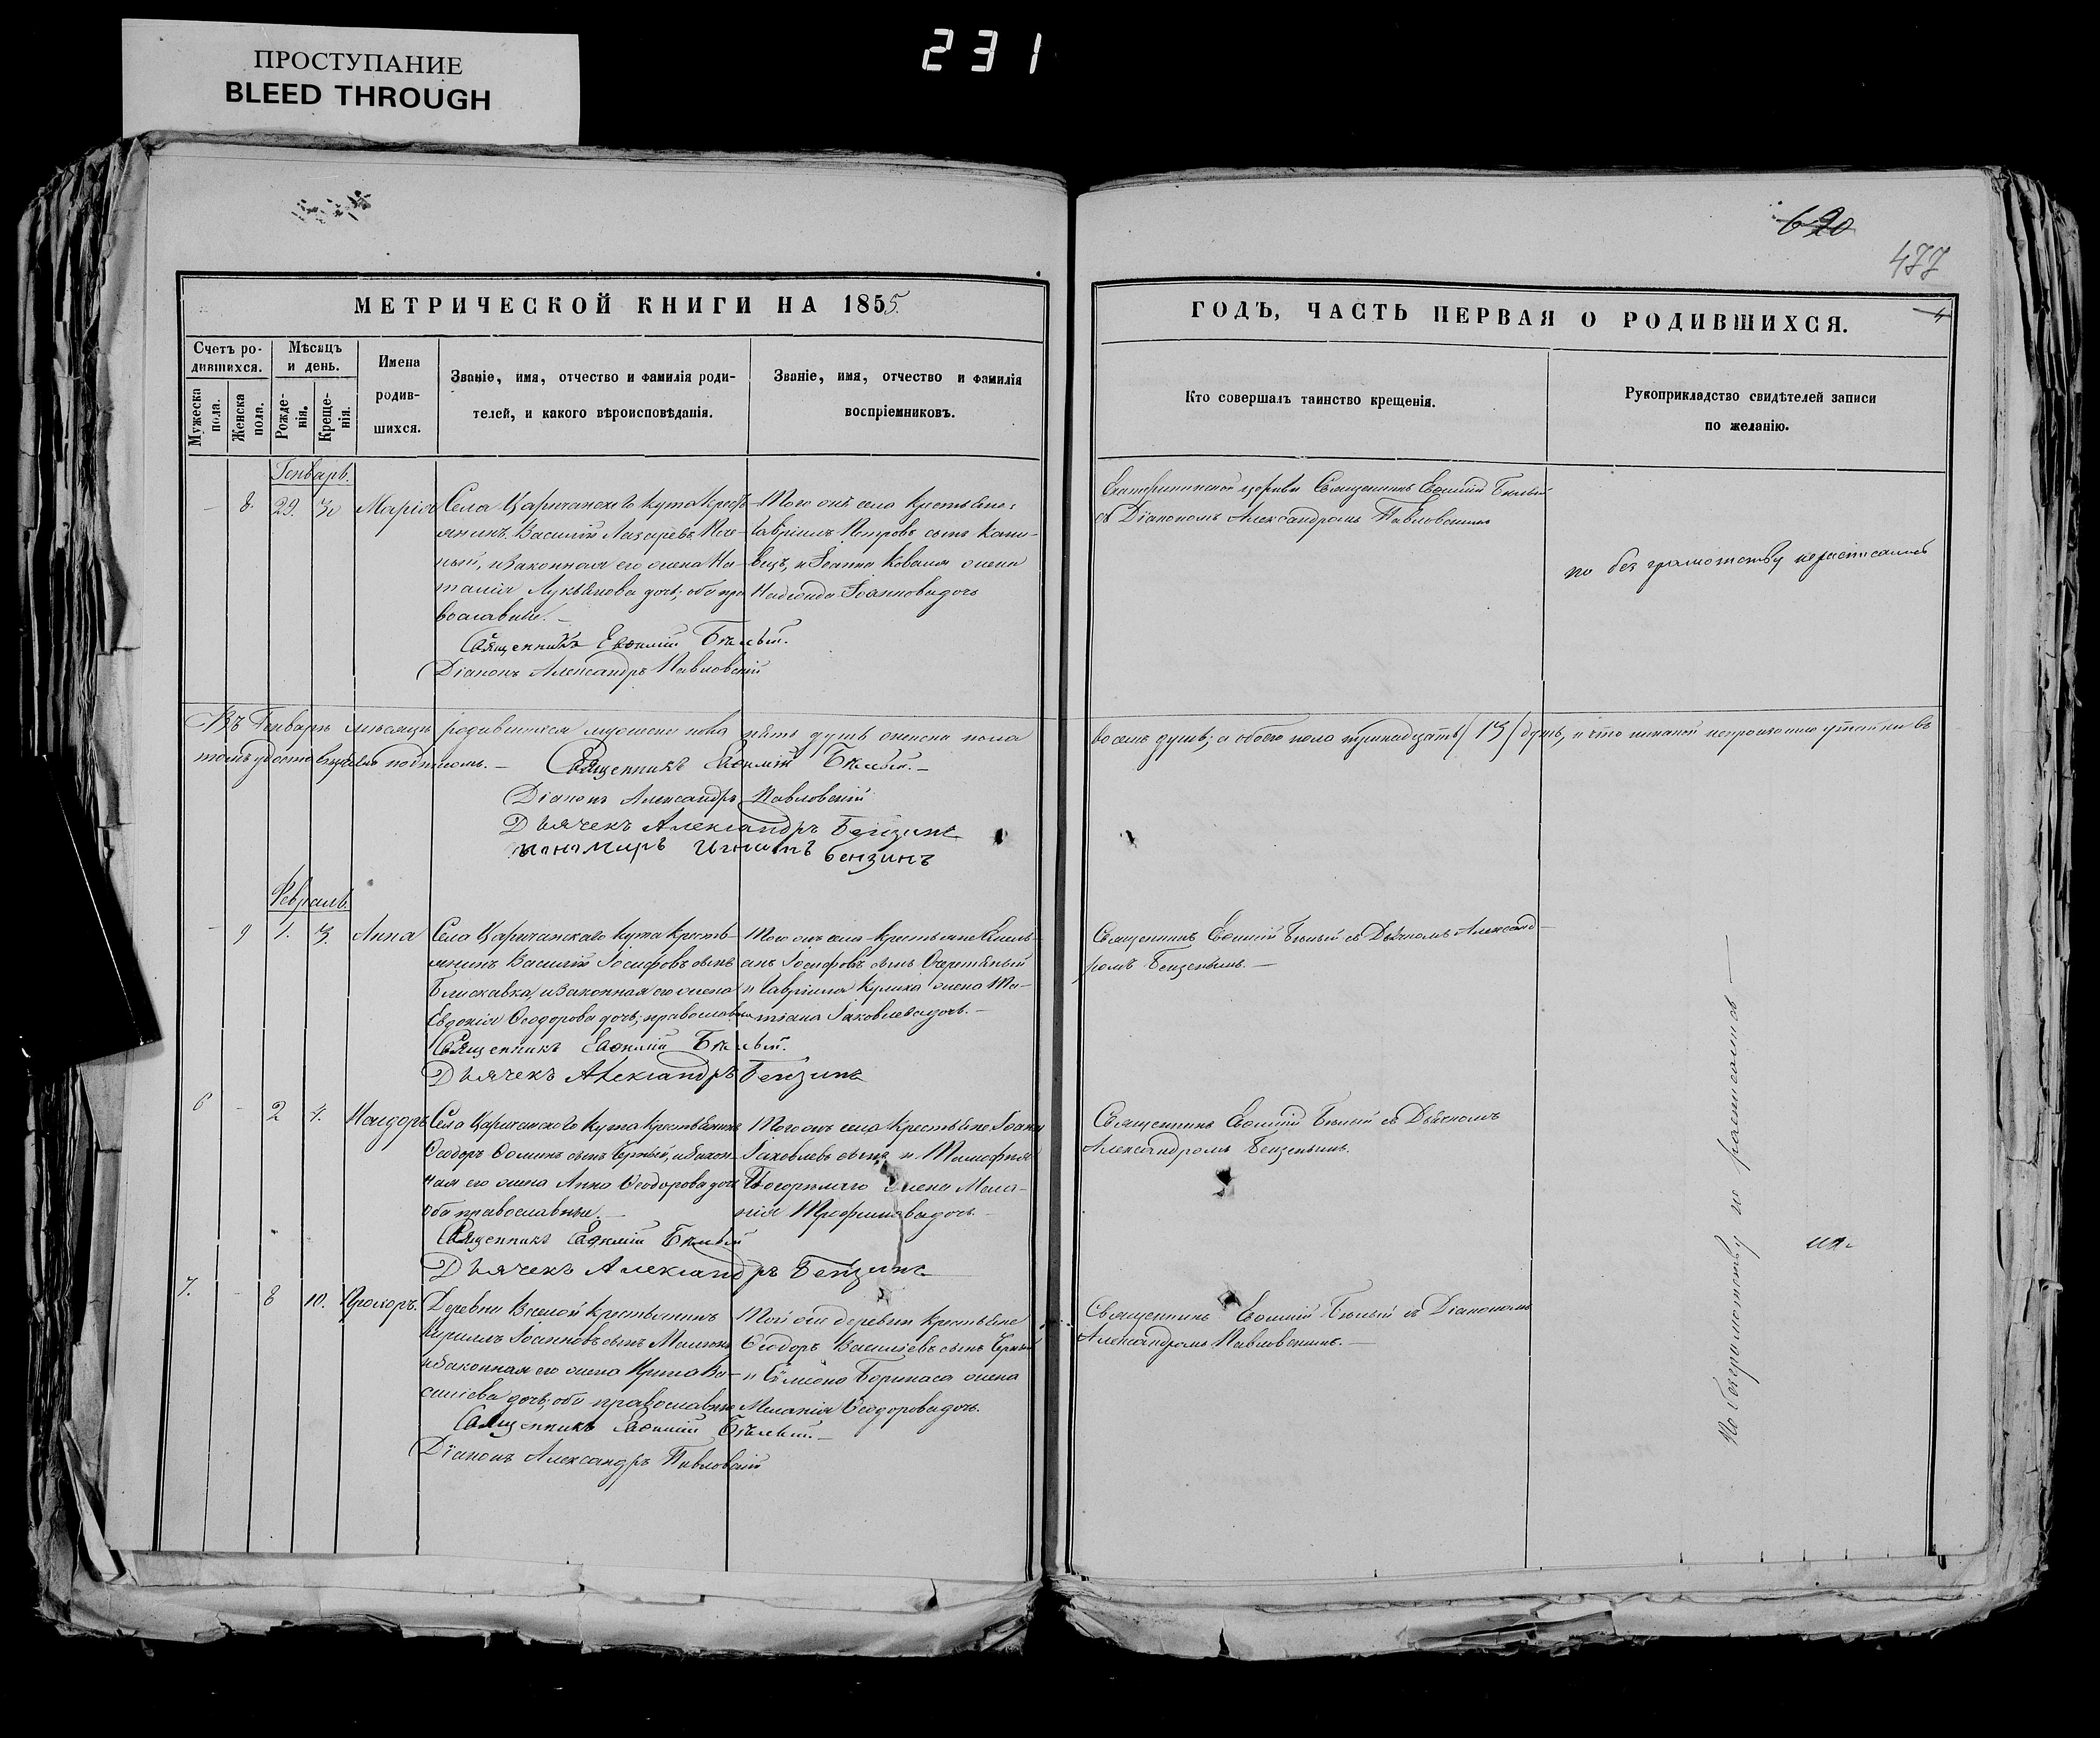 ПРОСТУПАНИЕ
BLEED THROUGH
231
620
477
МЕТРИЧЕСКОЙ КНИГИ НА 1855.
Счетъ ро-
дившихся.
Мужеска
пола.
Женска
пола.
Мѣсяцъ
и день.
Рожде-
нія.
Креще-
нія.
Имена
родив-
шихся.
Званіе, имя, отчество и фамилія роди-
телей, и какого вѣроисповѣданія.
Званіе, имя, отчество и фамилія
воспріемниковъ.
ГОДЪ, ЧАСТЬ ПЕРВАЯ О РОДИВШИХСЯ.
4
Кто совершалъ таинство крещенія.
Рукоприкладство свидѣтелей записи
по желанію.
Генварь.
- 8. 29. 30 Марія
Села Царичанского Кута Кресть-
янинъ Василій Лазаревъ
законная его жена На-
талія Лукьянова дочь; оба пра
вославные. -
Священникъ Евѳимій Бѣлый.
Діаконъ Александръ Павловскій
Того же села Крестьяне:
Гавріилъ Петровъ сынъ
и Іоанна Коваля жена
Надежда Іоаннова дочь
Екатерининской церкви Священникъ Евѳимій Бѣлый
съ Діакономъ Александромъ Павловскимъ
по безграмотству не расписались
Въ Генварѣ мѣсяцѣ родившихся мужеска пола пять душъ женска пола
восемь душъ; а обоего пола тринадцать /13/ душъ, и что никакой не произошло утайки въ
томъ удостовѣряемъ подписомъ. - Священникъ Евѳимій Бѣлый. -
Діаконъ Александръ Павловскій
Дьячекъ Александръ Бензинъ
пономаръ Бензинъ
Февраль.
- 9 1. 3. Анна
Села Царичанского Кута Кресть-
янинъ Василій Іосифовъ сынъ
Блискавка, и законная его жена
Евдокія Ѳеодорова дочь; православные
Священникъ Евѳимій Бѣлый.
Дьячекъ Александръ Бензинъ
Того жъ села Крестьяне
Іосифовъ сынъ
и Гавріила Кулика жена Та-
тіана Іаковлева дочь. -
Священникъ Евѳимій Бѣлый съ Дьячкомъ Александ-
ромъ Бензинымъ. -
6 - 2 4. Исидоръ
Села Царичанского Кута Крестьянинъ
Ѳеодоръ Ѳоминъ сынъ Черный, и закон-
ная его жена Анна Ѳеодорова дочь
оба православные. -
Священникъ Евѳимій Бѣлый
Дьячекъ Александръ Бензинъ
Того жъ села Крестьяне Іоаннъ
Іаковлевъ сынъ и Тимофея
жена Мела-
нія Трофимова дочь. -
Священникъ Евѳимій Бѣлый съ Дьячкомъ
Александромъ Бензинымъ.
7. - 8 10. Прохоръ.
Деревни Крестьянинъ
Кириллъ Іоанновъ сынъ
и законная его жена Ирина Ва-
силіева дочь; оба православные
Священникъ Евѳимій Бѣлый. -
Діаконъ Александръ Павловскій
Той же деревни Крестьяне
Ѳеодоръ Василіевъ сынъ Черный
и жена
Меланія Ѳеодорова дочь.
Священникъ Евѳимій Бѣлый съ Діакономъ
Александромъ Павловскимъ. -
По безграмотству не расписались -